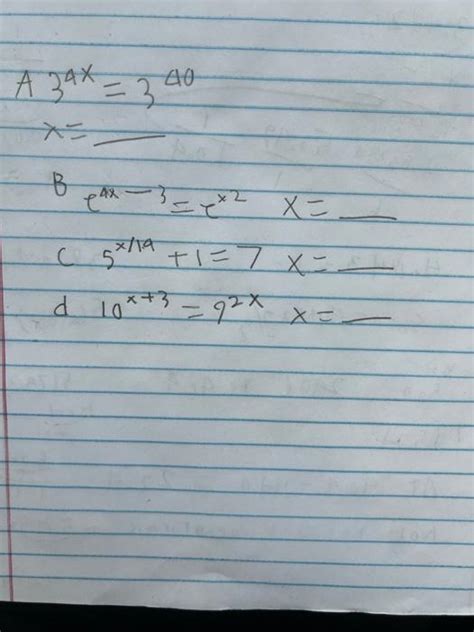 A 3^4x = 3^40
x = ___
B e^4x - 3 = e^x2 x = ___
C 5^x/14 + 1 = 7 x = ___
d 10^x+3 = 9^2x x = ___